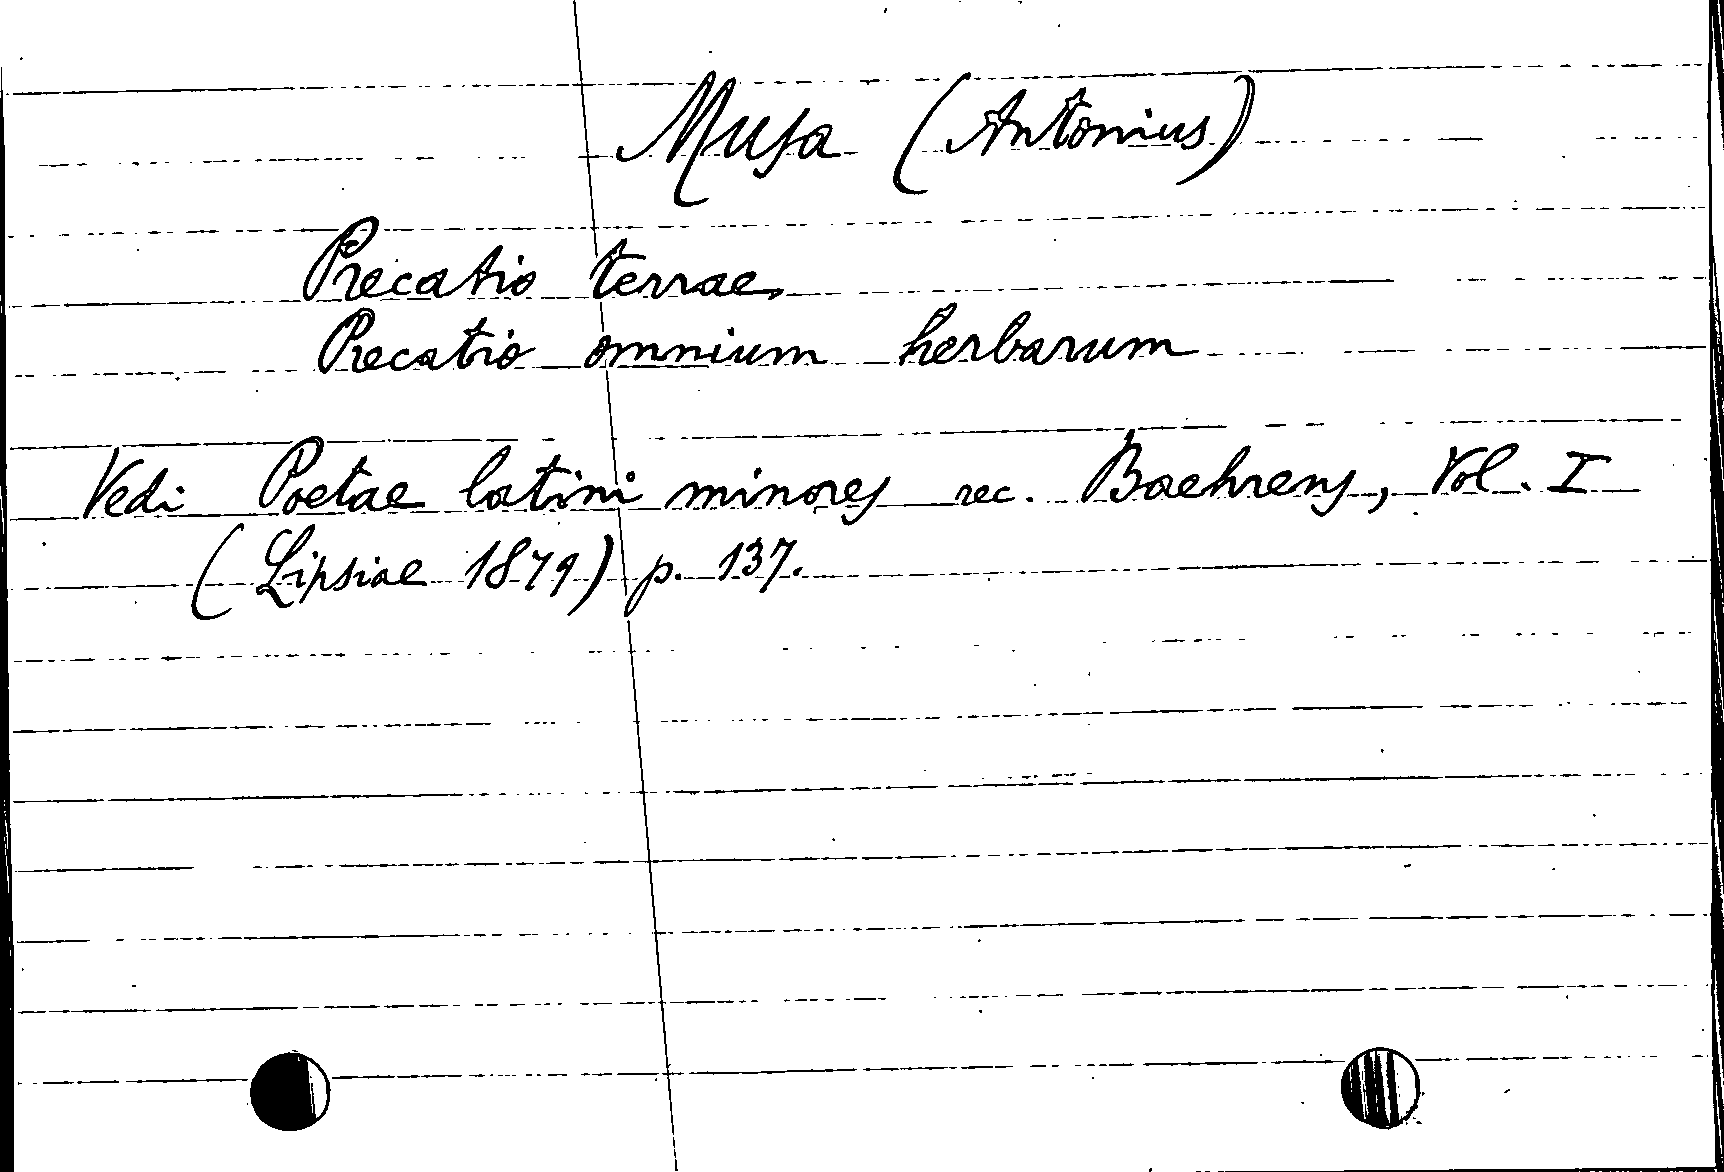 Musa (Antonius)
Precatio terrae,
Precatio omnium herbarum
Vedi Poetae latini minores rec. Baehrens, Vol. I
(Lipsiae 1879) p. 137.